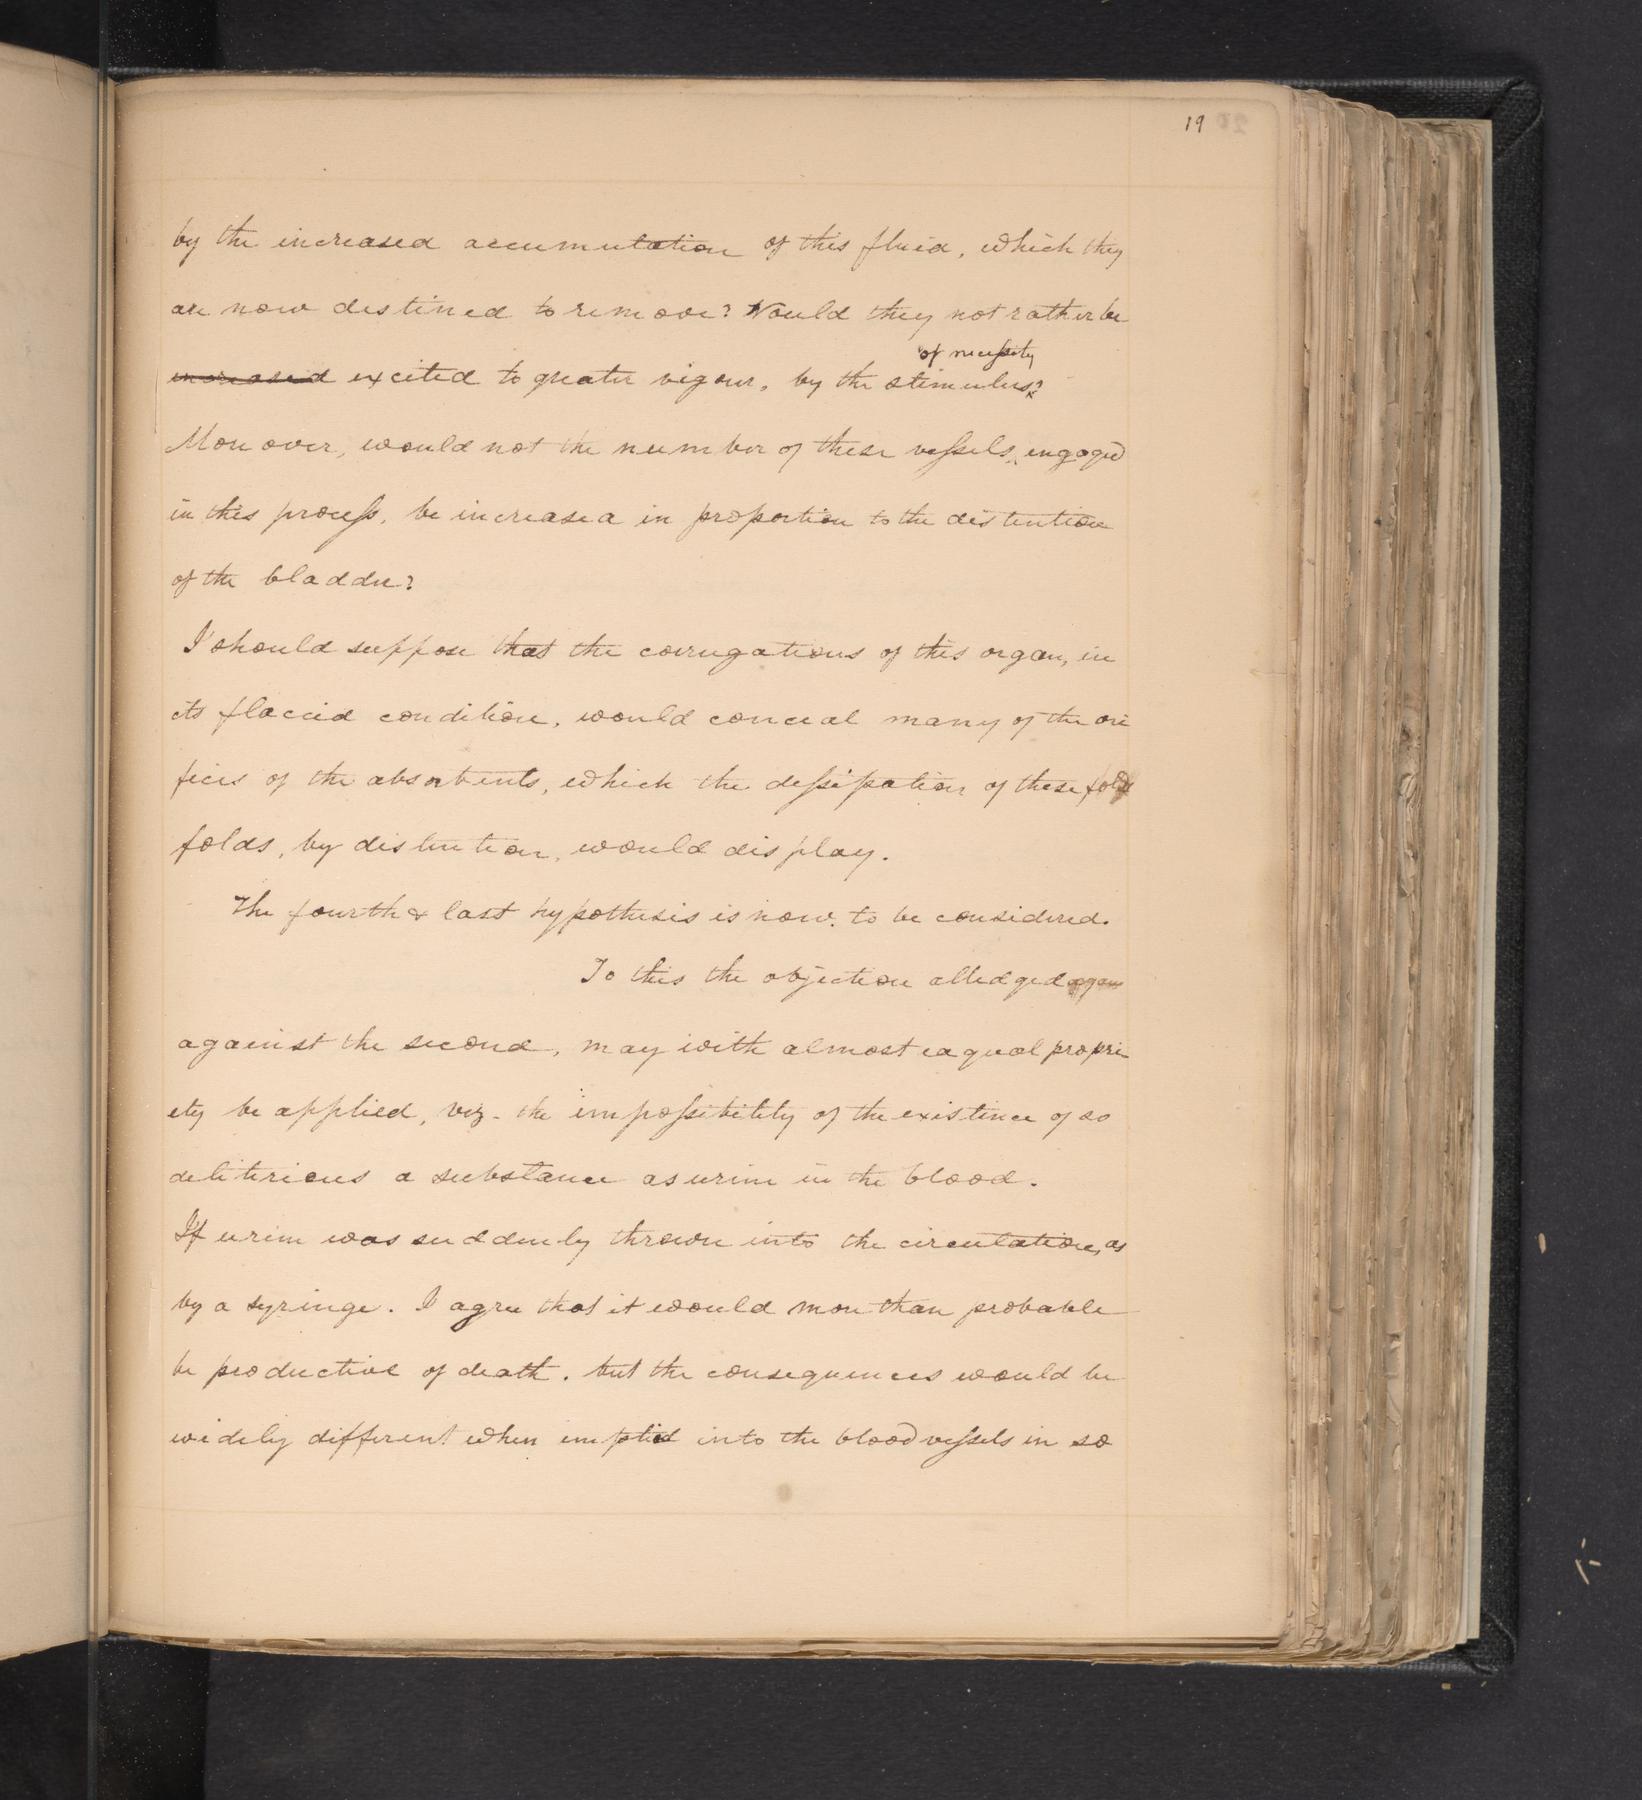 19
by the increased accumulation of this fluid, which they
are now destined to remove? Would they not rather be
of necessity
increased excited to greater vigour, by the stimulus?
Moreover, would not the number of these vessels, engaged
in this process, be increased in proportion to the distention
of the bladder?
I should suppose that the corrugations of this organ, in
its flaccid condition, would conceal many of the ori
fices of the absorbents, which the dissipation of these folds
folds, by distention, would display.
The fourth & last hypothesis is now to be considered.
To this the objection alledged again
against the second, may with almost eaqual propri
ety be applied, viz - the impossibility of the existence of so
deliterious a substance as urine in the blood.
If urine was suddenly thrown into the circulation, as
by a syringe. I agree that it would more than probable
be productive of death. but the consequences would be
widely different when emptied into the blood vessels in so